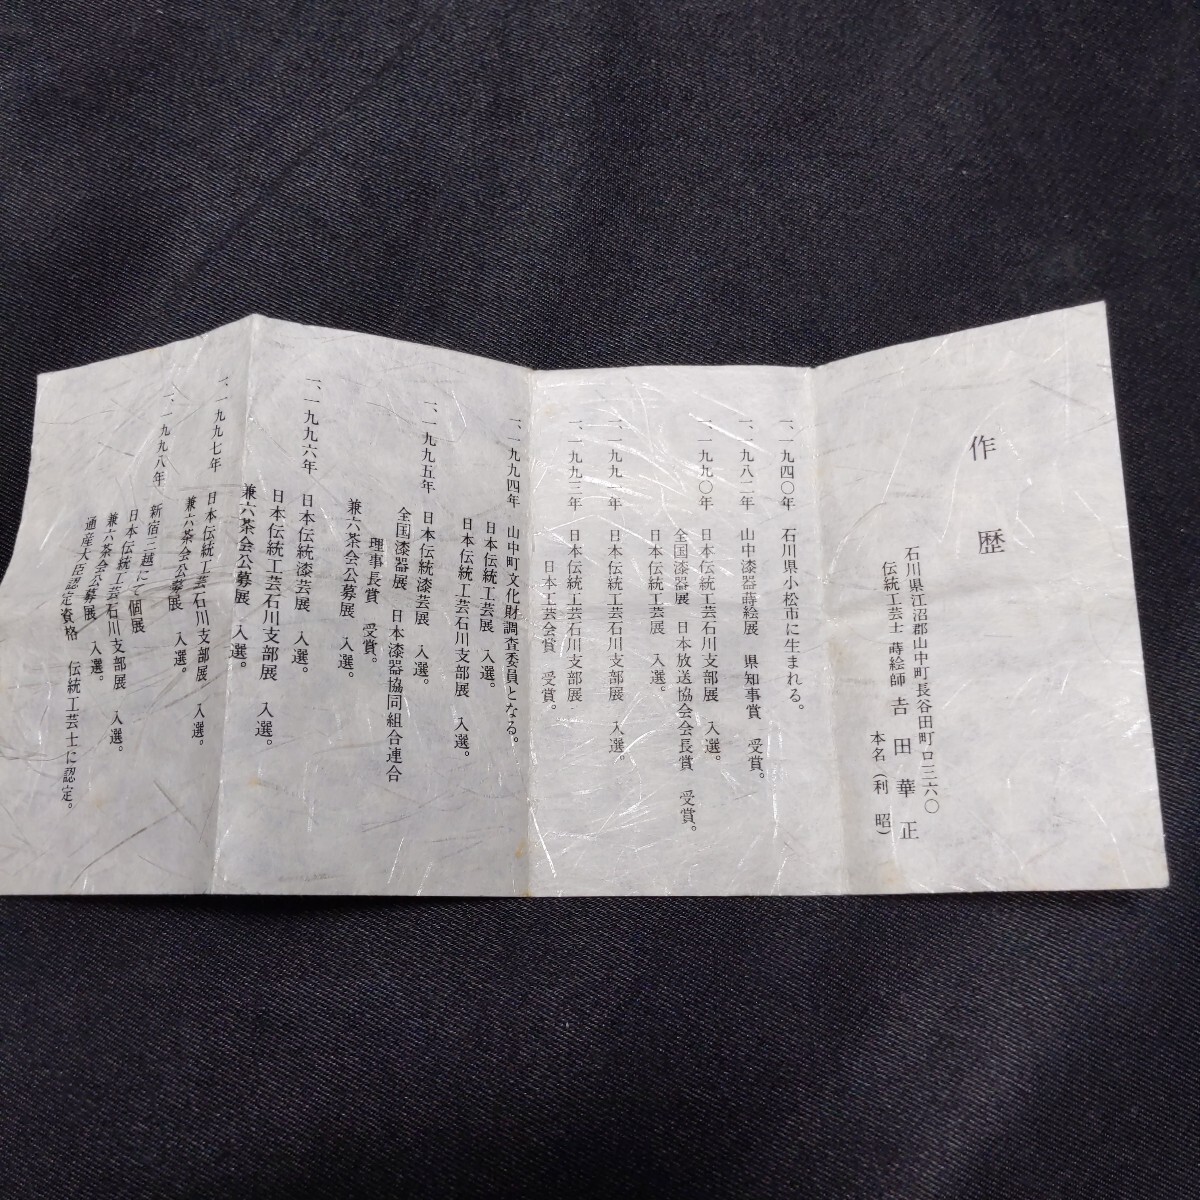 作歴
石川県江沼郡山中町長谷田町ロ三六〇
伝統工芸士 蒔絵師 吉田華正
本名(利昭)
一、一九四〇年 石川県小松市に生まれる。
一、一九八二年 山中漆器蒔絵展 県知事賞 受賞。
一、一九九〇年 日本伝統工芸石川支部展 入選。
全国漆器展 日本放送協会会長賞 受賞。
日本伝統工芸展 入選。
一、一九九一年 日本伝統工芸石川支部展 入選。
一、一九九三年 日本伝統工芸石川支部展
日本工芸会賞 受賞。
一、一九九四年 山中町文化財調査委員となる。
日本伝統工芸展 入選。
日本伝統工芸石川支部展 入選。
一、一九九五年 日本伝統漆芸展 入選。
全国漆器展 日本漆器協同組合連合
理事長賞 受賞。
兼六茶会公募展 入選。
一、一九九六年 日本伝統漆芸展 入選。
日本伝統工芸石川支部展 入選。
兼六茶会公募展 入選。
一、一九九七年 日本伝統工芸石川支部展 入選。
兼六茶会公募展 入選。
一、一九九八年 新宿三越にて個展
日本伝統工芸石川支部展 入選。
兼六茶会公募展 入選。
通産大臣認定資格 伝統工芸士に認定。